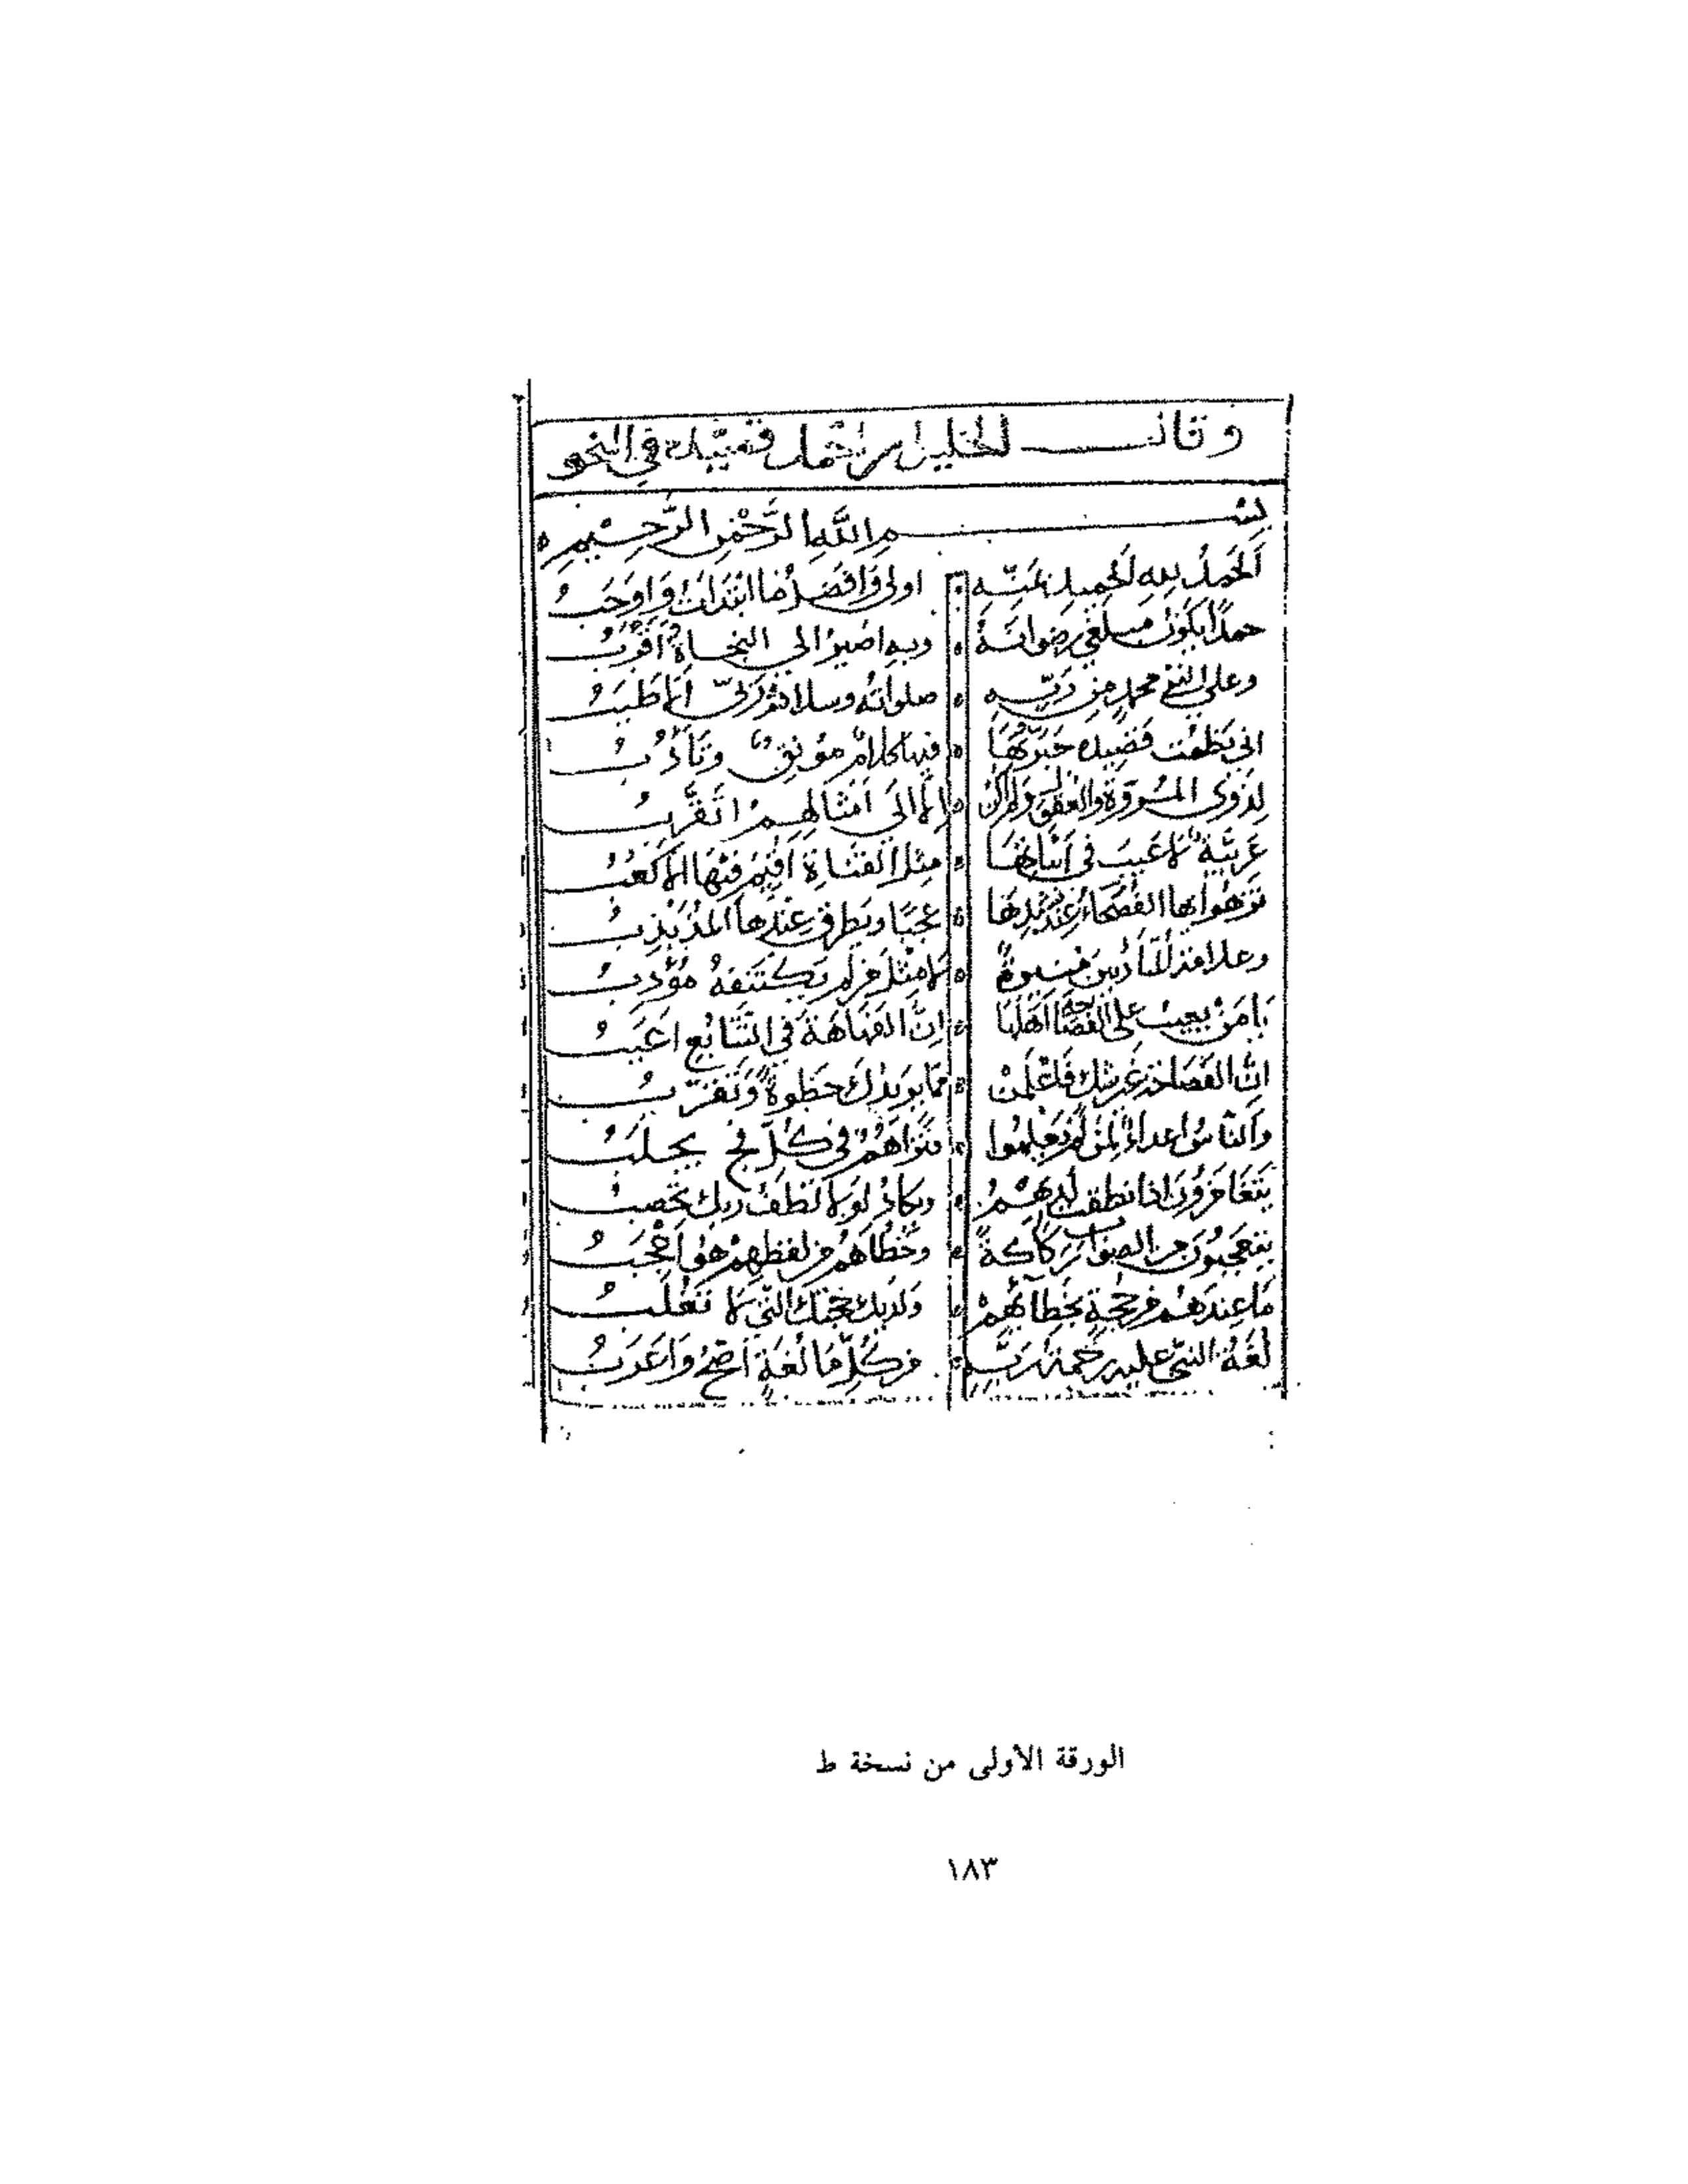 وقال الخليل بن احمد قصيدة في النحو
بسم الله الرحمن الرحيم
اَلحَمدُ للهِ اَلحميد بمَنّه اولى وَافضَلُ ما ابْتَدات وَاوجَبُ
حمدًا يكون مبلغي رضوانهُ وبه اصيرُ الى النجاة اَقْرُبُ
وعلى النبي محمدٍ من رَبّه صلواتهُ وسلام رَبّي الاطيَبُ
اني نظمت قصيده حبّرتُها فيها كلامٌ مونقٌ وتأدُّبُ
لذوي المُروّةِ والعقول ولم اكن اِلا الى اَمثالهم اتقرَّبُ
عَربيَّةً لا عَيبَ في اَبياتها مثل القناة اقيم فيها الاكعُبُ
تزهو بها الفصحاءُ عند نشيدها عُجبًا ويطرق عندها المتذبذبُ
لا مثل من لم يكتنفهُ مُؤدبُ
يامَنْ يعيبُ على الفصاحة اَهلَها انَّ الفهاهَةَ في التتابُع اعيَبُ
انَّ الفصاحة غير شك فاعلَمَنْ مما يزيدك حظوةً وتقرّبُ
وَالناسُ اعداءٌ لمن لم يعلموا فتراهُمُ في كلِّ فج يجلبُ
يَتَغامزُونَ اذا نطقت لديهمُ وتكادُ لولا لطفُ ربك تحصبُ
يتعجبُونَ من الصواب ركاكةً وخطاهُمُ من لفظهِمْ هُو اَعْجَبُ
ماعندهُم من حجةٍ بخطائهُمْ ولديك حجتك التي لا تغلَبُ
لُغَةُ النبيّ عليه رحمةُ رَبّه من كلّ ما لُغَةٍ اَصحُّ وَاعرَبُ
الورقة الأولى من نسخة ط
١٨٣